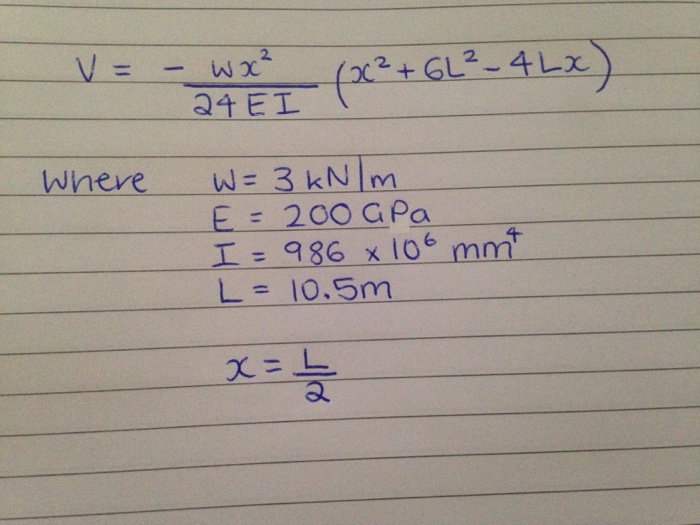 V = - wx²/24EI (x² + 6L² - 4Lx)
Where W = 3 kN/m
E = 200 GPa
I = 986 x 10⁶ mm⁴
L = 10.5m
x = L/2